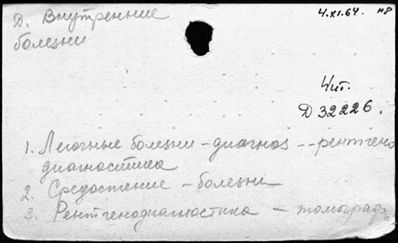 4.XI.64. н8
Д. Внутренние
болезни
Чит.
Д 32226.
1. Легочные болезни - диагноз -- рентгено
диагностика
2. Средостение - болезни
3. Рентгенодиагностика - томограф